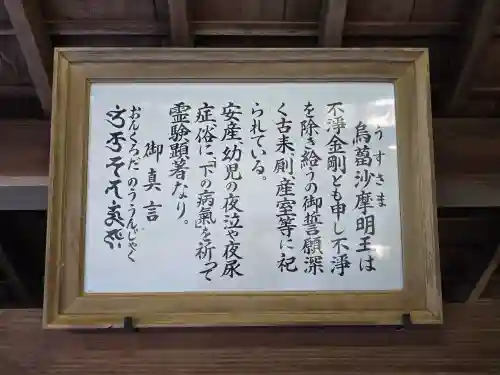 烏蒭沙摩明王は
うすさま
不浄金剛とも申し不浄
を除き給うの御誓願深
く古来、厠、産室等に祀
られている。
安産、幼児の夜泣や夜尿
症、俗に「下の病氣」を祈って
霊験顕著なり。
御真言
おんくろだのううんじゃく